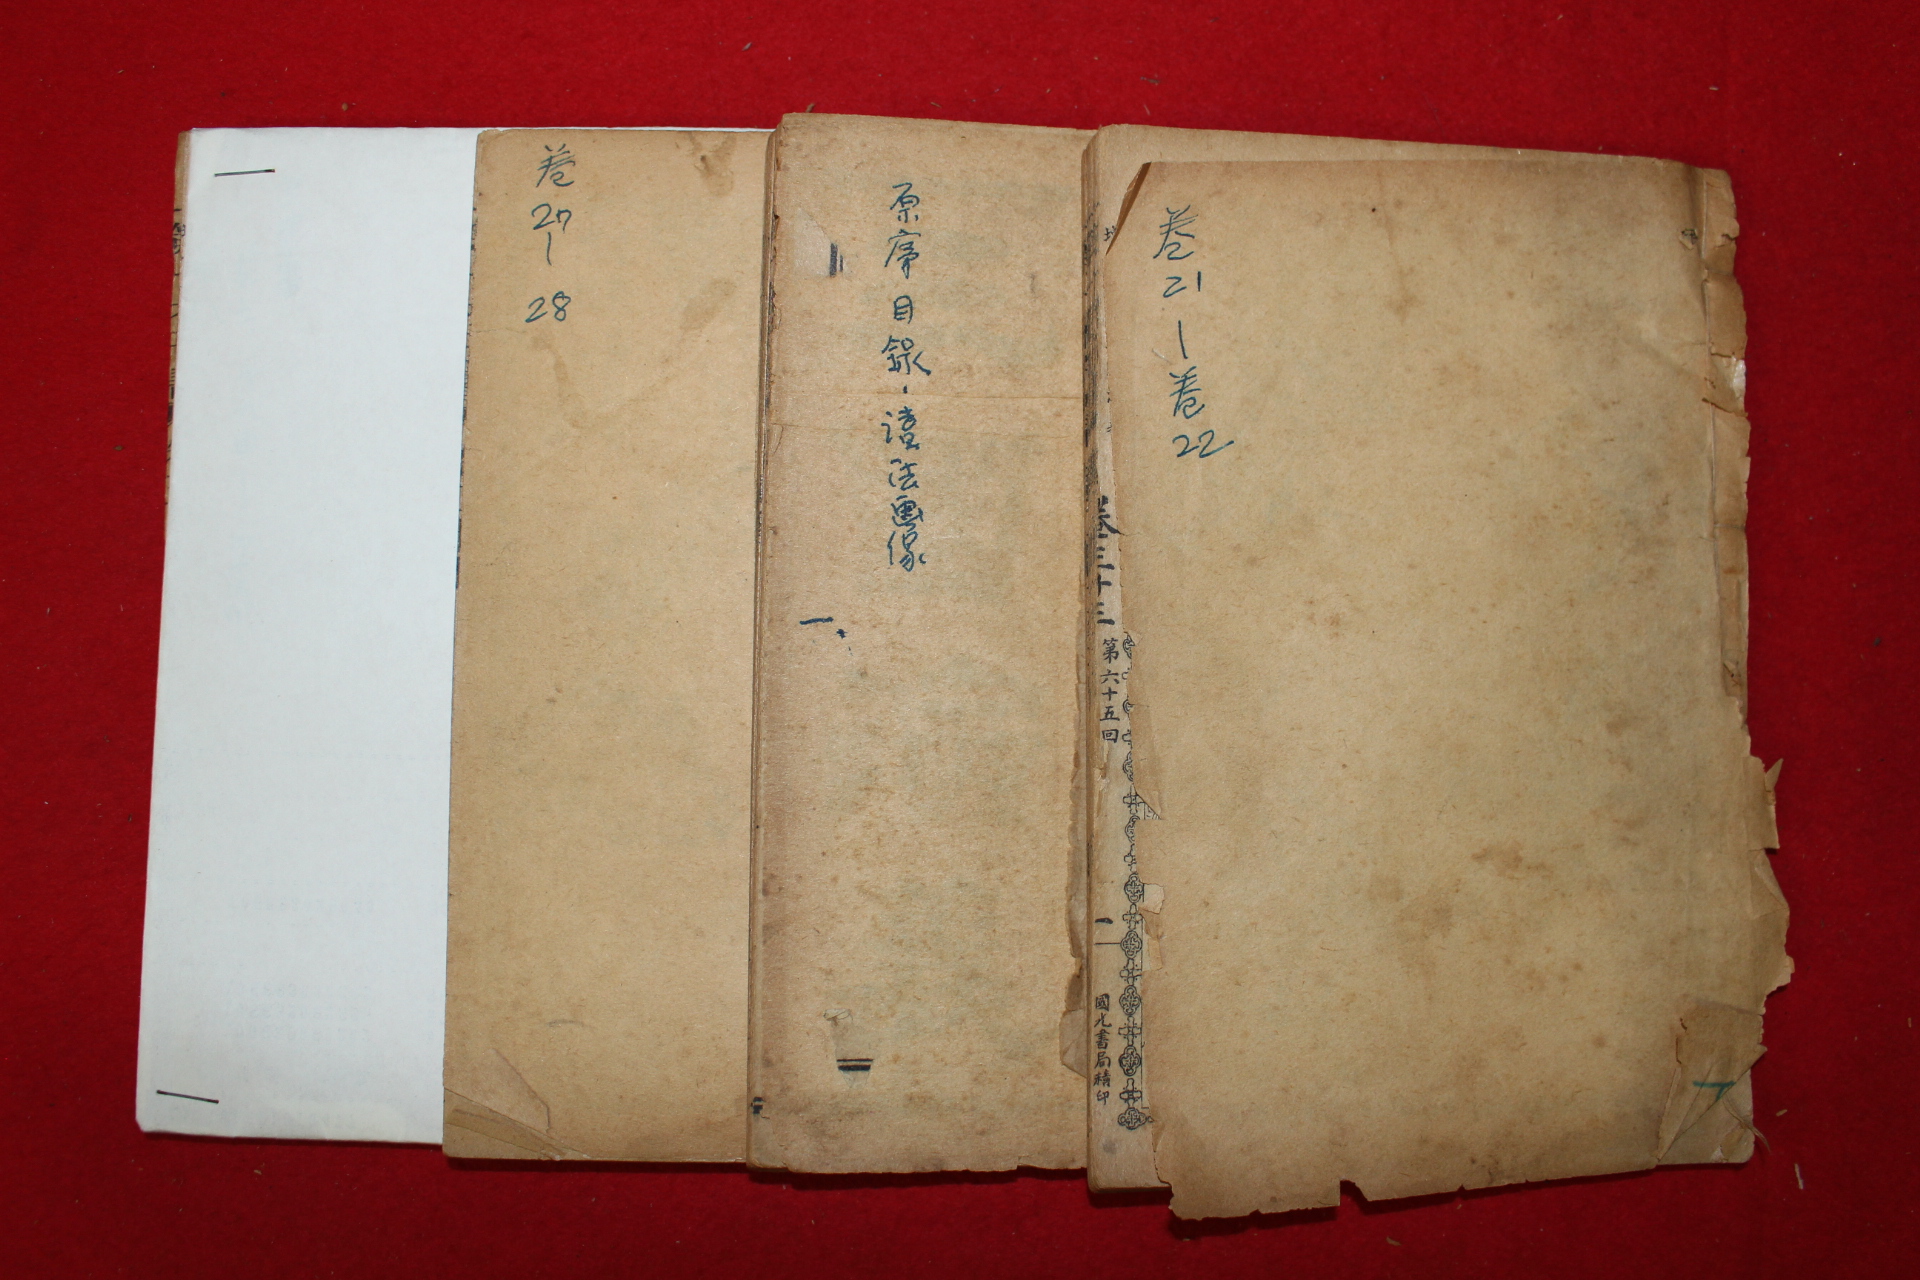 卷
27
|
28
原序目録、讀法画像
一、
卷
21
|
卷
22
卷三十三
第六十五回
一
國光書局精印